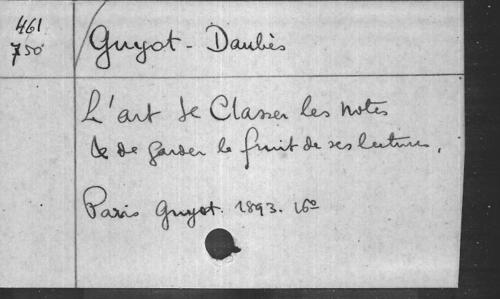 461
750
Guyot-Daubès
L'art de Classer les notes
& de garder le fruit de ses lectures.
Paris Guyot. 1893. 16º